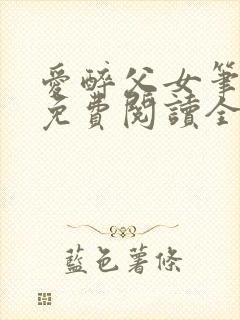 愛醉父女筆
免費閱讀全
藍色薯條